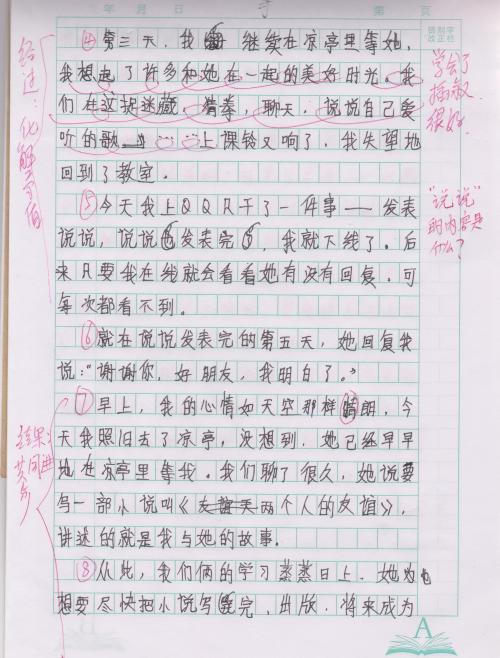 年 月 日
第 页
错别字
改正栏
④第三天，我 继续在凉亭里等她，
我想起了许多和她在一起的美好时光。我
们在这捉迷藏，猜拳，聊天，说说自己爱
听的歌……上课铃又响了，我失望地
回到了教室。
⑤今天我上QQ只干了一件事——发表
说说，说说发表完，我就下线了。后
来只要我在线就会看看她有没有回复，可
每次都看不到。
⑥就在说说发表完的第五天，她回复我
说：“谢谢你，好朋友，我明白了。”
⑦早上，我的心情如天空那样晴朗，今
天我照旧去了凉亭，没想到，她已经早早
地在凉亭里等我。我们聊了很久，她说要
写一部小说叫《两个人的友谊》，
讲述的就是我与她的故事。
⑧从此，我们俩的学习蒸蒸日上，她也
想要尽快把小说写完，出版，将来成为
学会了
插叙
很好
“说说”
的内容是
什么？
经过：化解
结果：
共同进
步
A